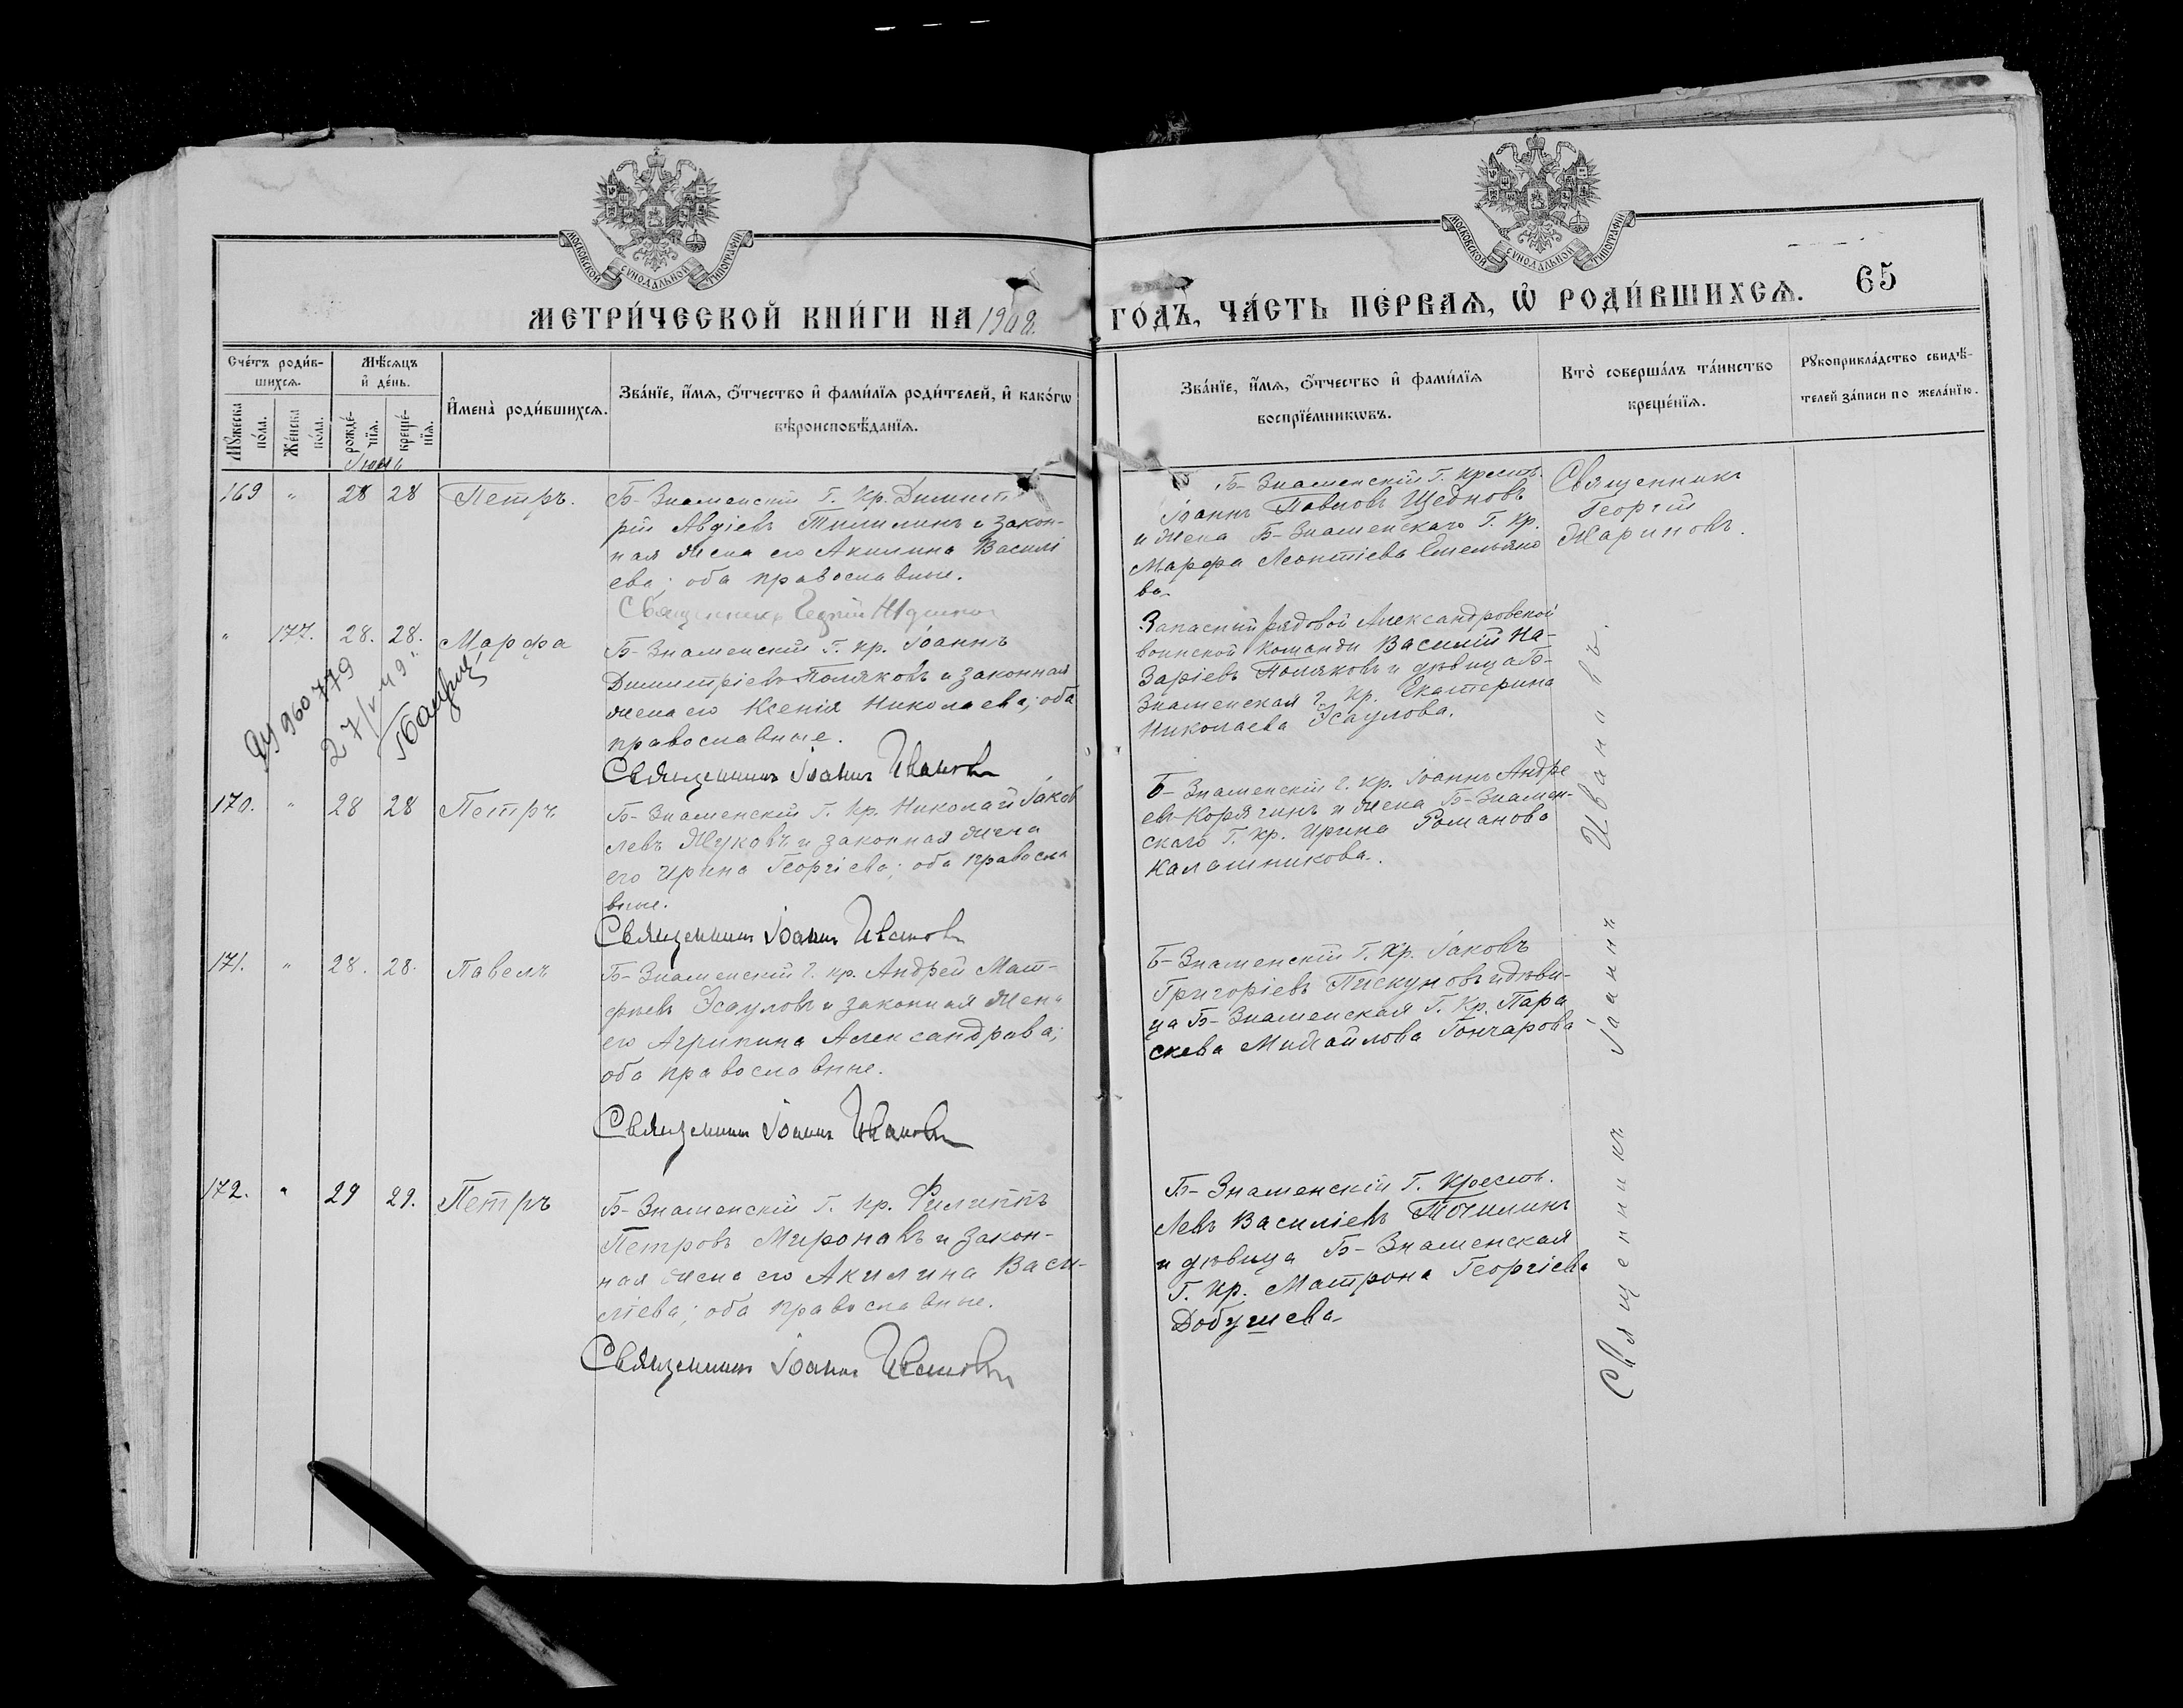 МОСКОВСКОЙ СѴНОДАЛЬНОЙ ТИПОГРАФІИ
МОСКОВСКОЙ СѴНОДАЛЬНОЙ ТИПОГРАФІИ
МЕТРИ́ЧЕСКОЙ КНИ́ГИ НА 1902.
ГО́ДЪ, ЧА́СТЬ ПЕ́РВАѦ, Ѡ҆ РОДИ́ВШИХСѦ. 65
Сче́тъ роди́в-
шихсѧ.
Мꙋ́жеска по́ла.
Же́нска по́ла.
Мѣ́сѧцъ
и҆ де́нь.
рожде́-
нїѧ.
креще́-
нїѧ.
И҆мена̀ роди́вшихсѧ.
Зва́нїе, и҆́мѧ, ѻ҆́тчество и҆ фами́лїѧ роди́телей, и҆ како́гѡ
вѣроисповѣ́данїѧ.
Зва́нїе, и҆́мѧ, ѻ҆́тчество и҆ фами́лїѧ
воспрїе́мникѡвъ.
Кто̀ соверша́лъ та́инство
креще́нїѧ.
Рꙋкоприкла́дство свидѣ́-
телей за́писи по жела́нїю.
169 " 28 28 Петръ.
Б-Знаменскій Г. Кр. Димит
рій Авдіевъ Тишлинъ и закон-
ная жена его Акилина Васили
ева; оба православные.
Священникъ Георгій
Б-Знаменскій Г. Крест.
Іоаннъ Павловъ Щедновъ
и жена Б-Знаменскаго Г. Кр.
Марфа Леонтіева Емельяно
ва
Священникъ
Георгій
Жариновъ.
" 177. 28. 28. Марфа
Б-Знаменскій Г. Кр. Іоаннъ
Димитріевъ Поляковъ и законная
жена его Ксенія Николаева; оба
православные.
Священникъ Іоаннъ Ивановъ
960779
27/V 49
Запасный рядовой Александровской
воинской команды Василій На-
заріевъ Поляковъ и дѣвица Б-
Знаменская Г. Кр. Екатерина
Николаева Эсаулова.
170. " 28 28 Петръ
Б-Знаменскій Г. Кр. Николай Іаков
левъ Жуковъ и законная жена
его Ирина Георгіева; оба правосла
вные.
Священникъ Іоаннъ Ивановъ
Б-Знаменскій Г. Кр. Іоаннъ Андре
евъ Корягинъ и жена Б-Знамен-
скаго Г. Кр. Ирина Романова
Калашникова.
171. " 28. 28. Павелъ
Б-Знаменскій Г. Кр. Андрей Мат-
фѣевъ Эсауловъ и законная жена
его Агрипина Александрова;
оба православные.
Священникъ Іоаннъ Ивановъ
Б-Знаменскій Г. Кр. Іаковъ
Григоріевъ Пискуновъ и дѣви-
ца Б-Знаменская Г. Кр. Пара
скева Михайлова Гончарова
172. " 29 29. Петръ
Б-Знаменскій Г. Кр. Филиппъ
Петровъ Мироновъ и закон-
ная жена его Акилина Васи-
ліева; оба православные.
Священникъ Іоаннъ Ивановъ
Б-Знаменскій Г. Крест.
Левъ Василіевъ Точилинъ
и дѣвица Б-Знаменская
Г. Кр. Матрона Георгіева
Добушева
Священникъ Іоаннъ Ивановъ.